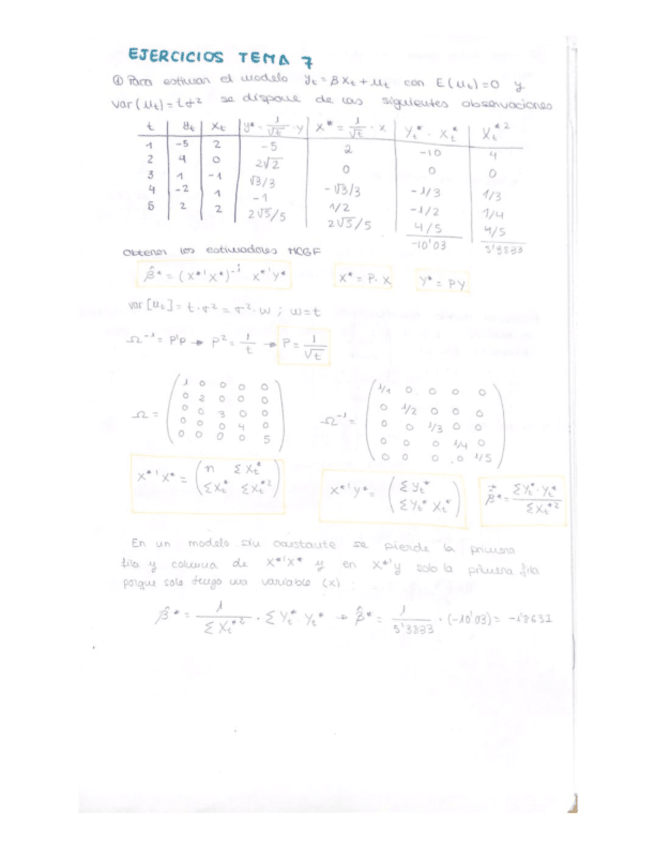 EJERCICIOS TEMA 7
① Para estimar el modelo yt = β xt + ut con E(ut)=0 y
var(ut)=tσ² se dispone de las siguientes observaciones
t yt xt y* = 1/√t · y x* = 1/√t · x yt* · xt* xt*²
1 -5 2 -5 2 -10 4
2 4 0 2√2 0 0 0
3 1 -1 √3/3 -√3/3 -1/3 1/3
4 -2 1 -1 1/2 -1/2 1/4
5 2 2 2√5/5 2√5/5 4/5 4/5
-10'03 5'3833
Obtener los estimadores MCGF
β̂* = (x*'x*)⁻¹ x*'y* x* = P·x y* = PY
var[ut] = t·σ² = σ²·w ; w=t
Ω⁻¹ = P'P → P² = 1/t → P = 1/√t
Ω = (1 0 0 0 0 Ω⁻¹ = (1/1 0 0 0 0
0 2 0 0 0 0 1/2 0 0 0
0 0 3 0 0 0 0 1/3 0 0
0 0 0 4 0 0 0 0 1/4 0
0 0 0 0 5) 0 0 0 0 1/5)
x*'x* = (n Σxt* Σxt* Σxt*²) x*'y* = (Σyt* Σyt* xt*) β̂* = Σyt*·yt* / Σxt*²
En un modelo sin constante se pierde la primera
fila y columna de x*'x* y en x*'y solo la primera fila
porque solo tengo una variable (x)
β̂* = 1/Σxt*² · Σyt* yt* → β̂* = 1/5'3833 · (-10'03) = -1'8631